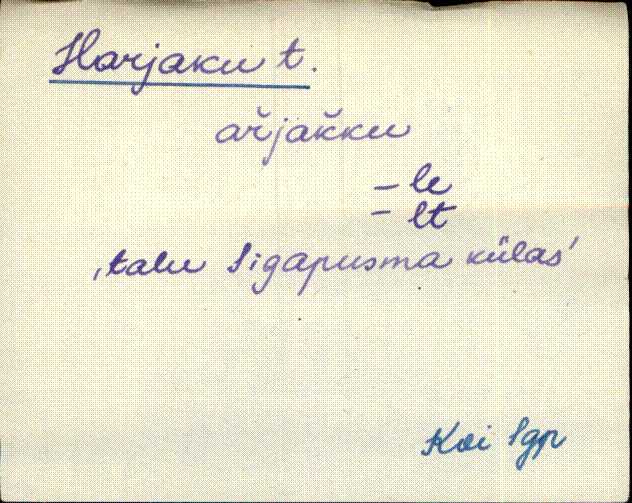 Harjaku t.
ař̆jak̆ku
– le
– lt
‚talu Sigapusma külas’
Koi Sgp